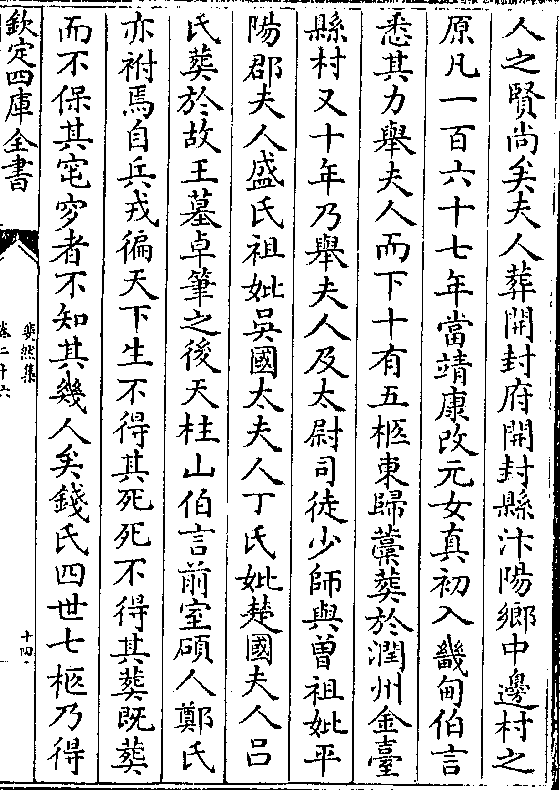 人之賢尚矣夫人葬開封府開封縣汴陽鄉中邊村之
原凡一百六十七年當靖康改元女真初入畿甸伯言
悉其力舉夫人而下十有五柩東歸藁葬於潤州金臺
縣村又十年乃舉夫人及太尉司徒少師與曽祖妣平
陽郡夫人盛氏祖妣吳國太夫人丁氏妣楚國夫人吕
氏葬於故王墓卓筆之後天柱山伯言前室碩人鄭氏
亦祔焉自兵戎徧天下生不得其死死不得其葬既葬
而不保其窀穸者不知其幾人矣錢氏四世七柩乃得
欽定四庫全書
斐然集
卷二十六
十四